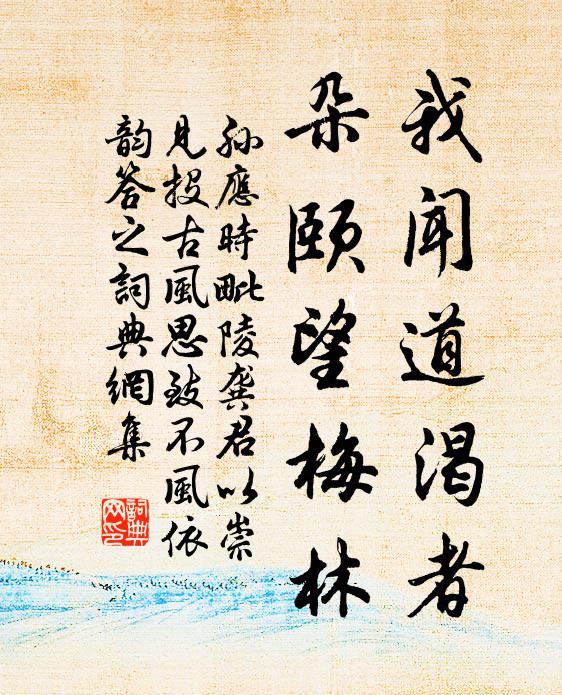 我闻道渴者
朵颐望梅林
孙應時毗陵龚君以崇
见投古風思致不風依
韵答之詞典網集
詞典
网印